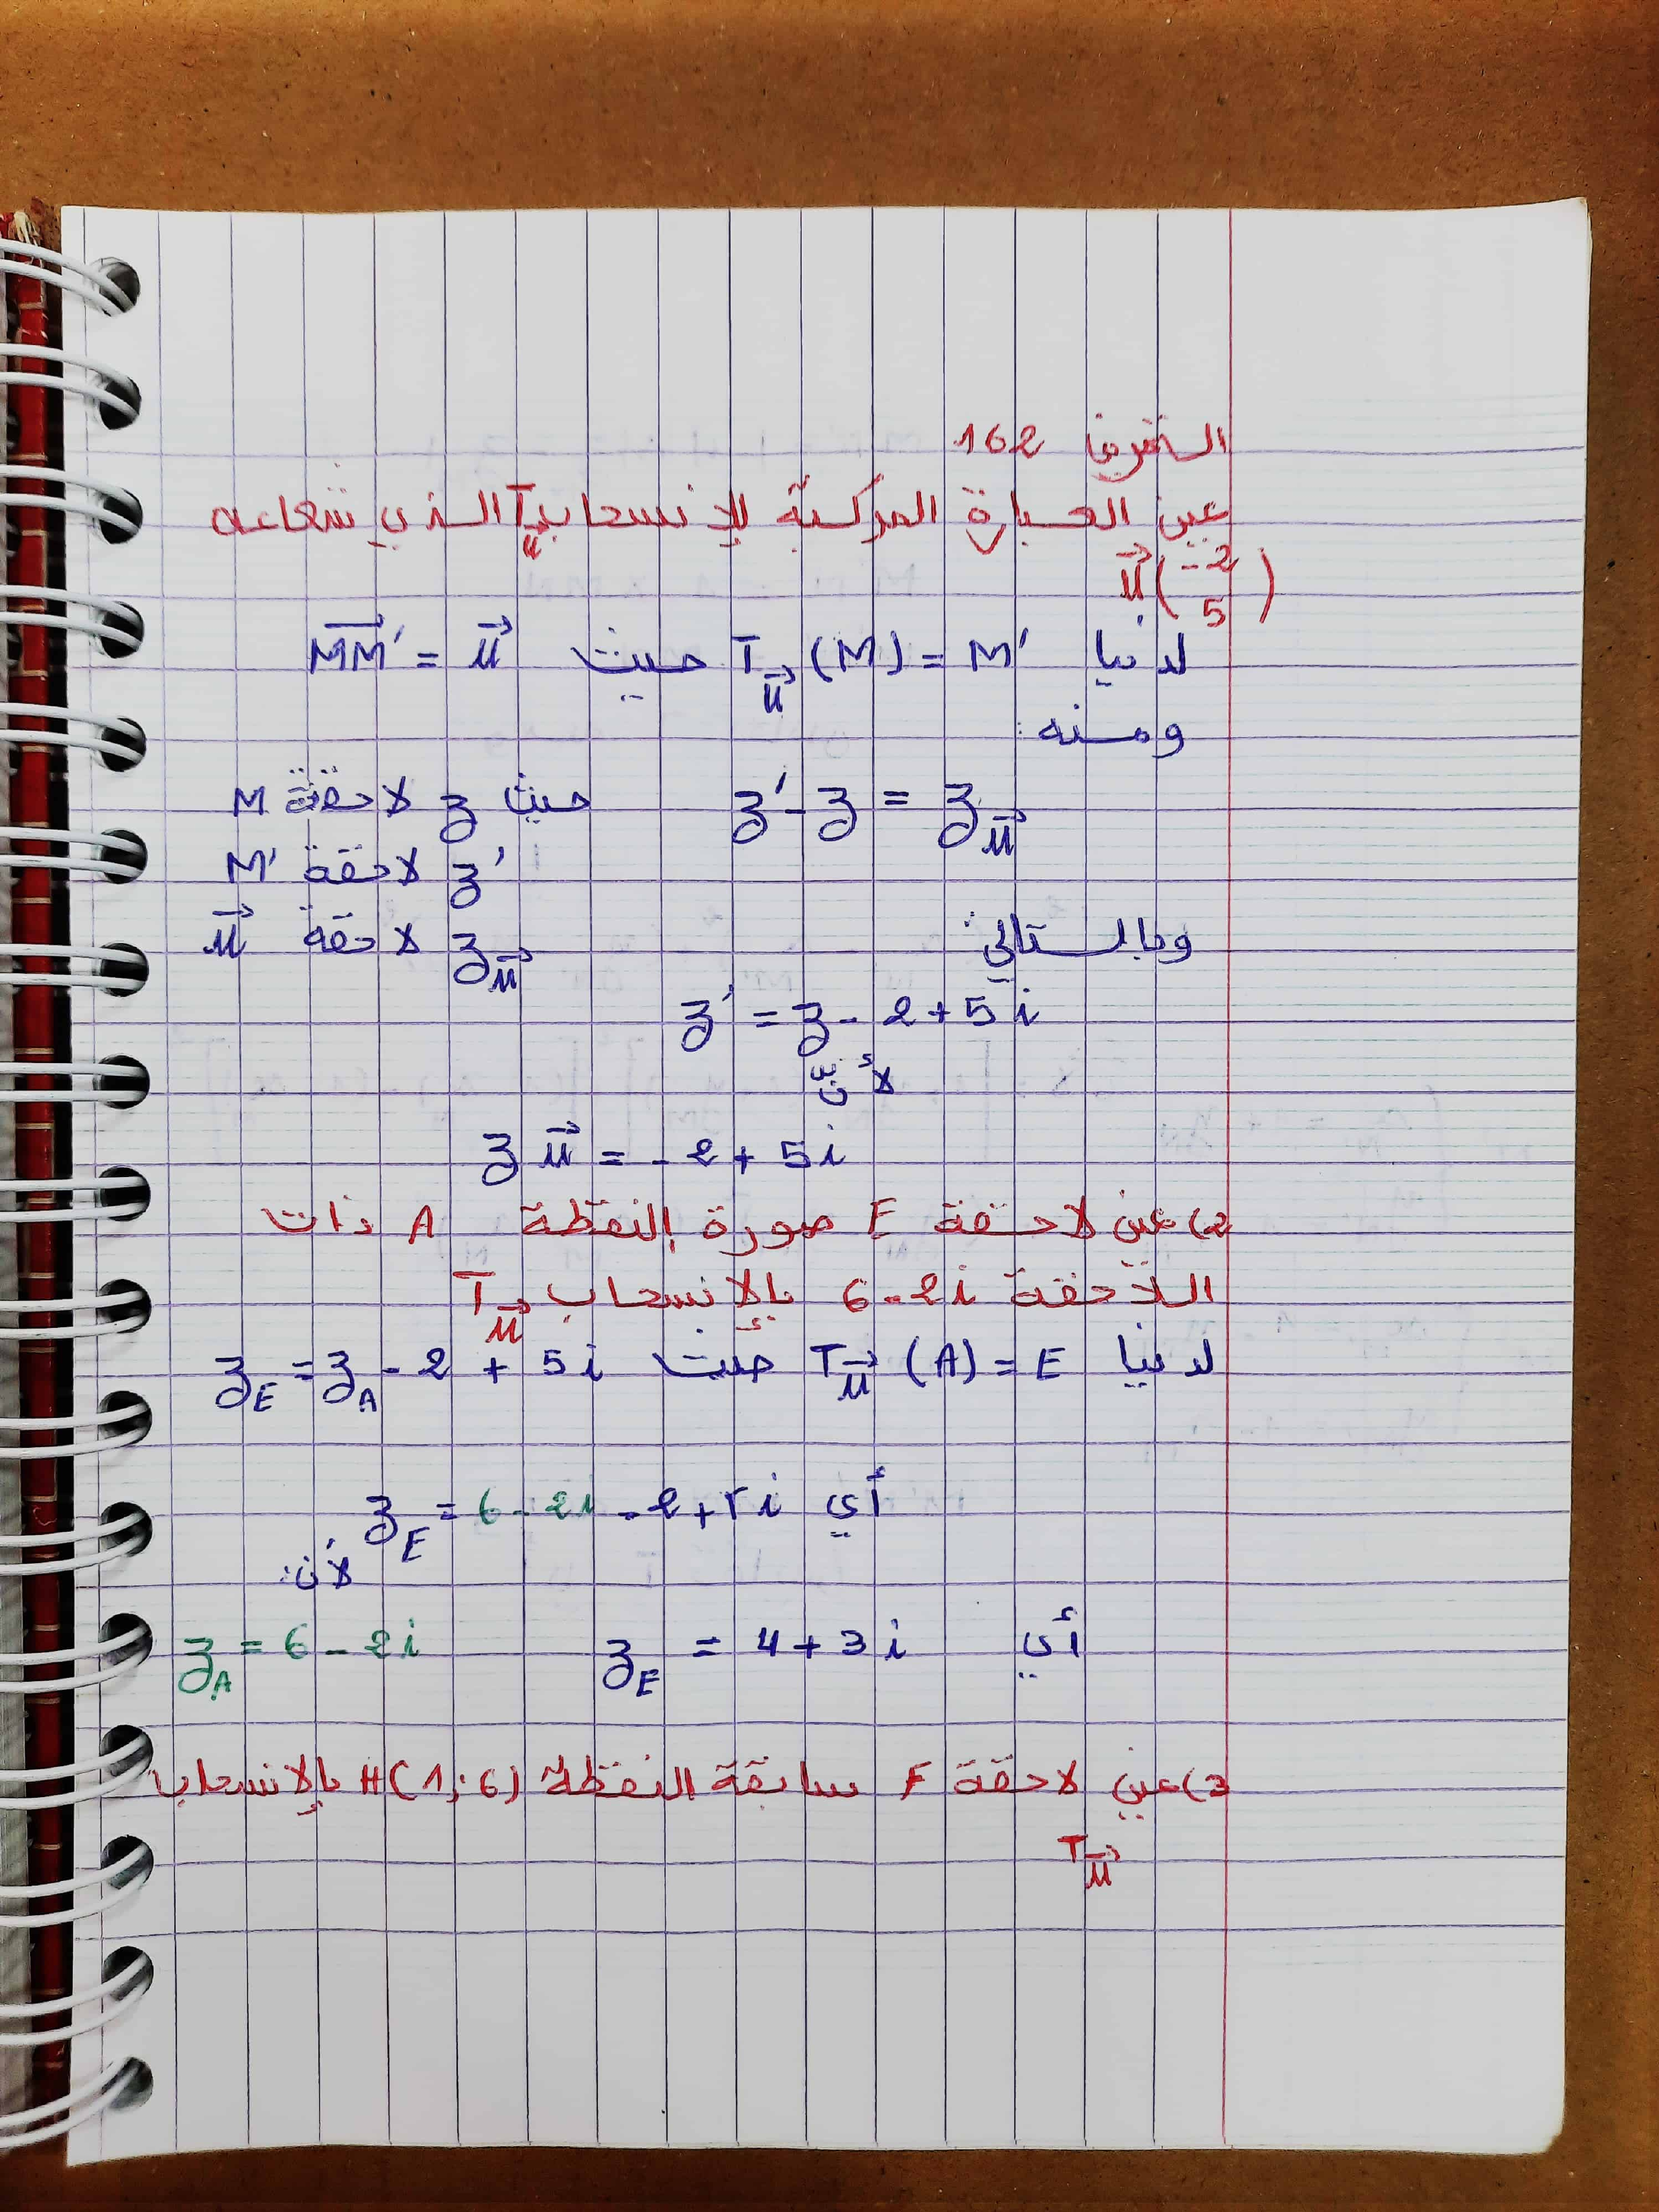 التمرين 162
عين العبارة المركبة للإنسحاب T_u⃗ الذي شعاعه
u⃗(-2 5)
لدينا T_u⃗ (M) = M' حيث MM'⃗ = u⃗
ومنه:
z' - z = z_u⃗ حيث z لاحقة M
z' لاحقة M'
وبالتالي: z_u⃗ لاحقة u⃗
z' = z - 2 + 5i
لأنّ
z u⃗ = - 2 + 5i
2) عين لاحقة E صورة النقطة A ذات
اللاحقة 6 - 2i بالإنسحاب T_u⃗
لدينا T_u⃗ (A) = E حيث z_E = z_A - 2 + 5i
أي z_E = 6 - 2i - 2 + 5i
لأن:
أي z_E = 4 + 3i z_A = 6 - 2i
3) عين لاحقة F سابقة النقطة H(1;6) بالإنسحاب
T_u⃗